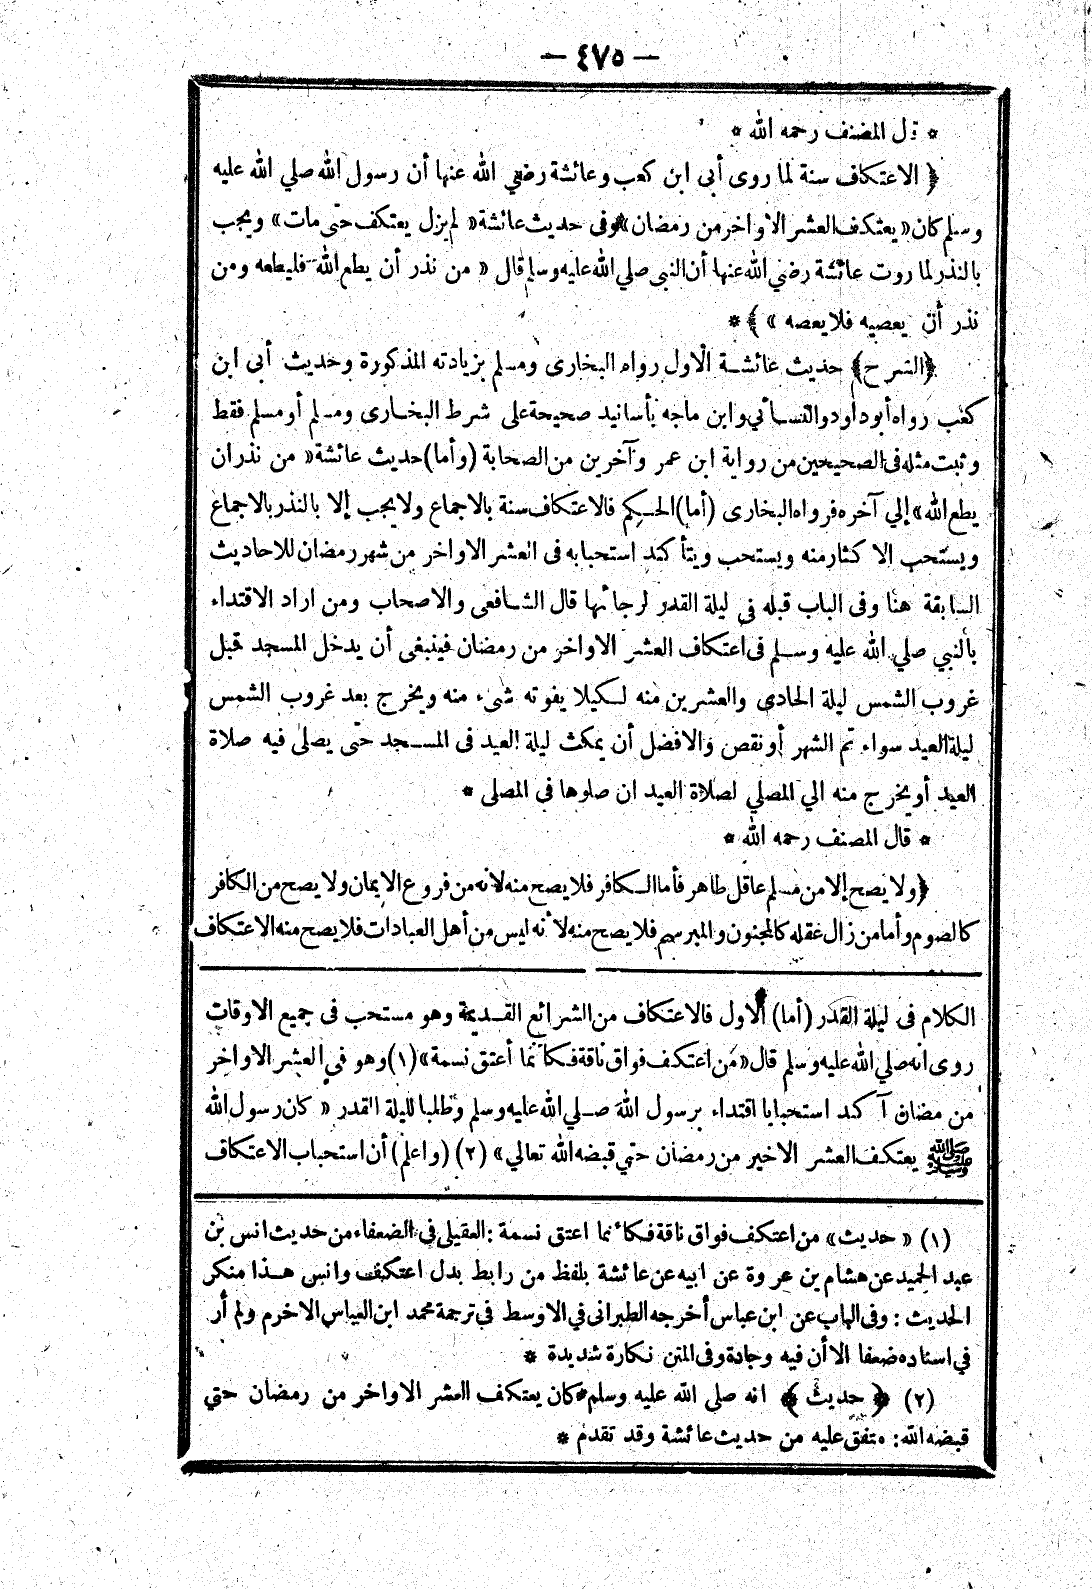 — ٤٧٥ —
* قال المصنف رحمه الله *
﴿ الاعتكاف سنة لما روى أبى ابن كعب وعائشة رضي الله عنها أن رسول الله صلي الله عليه
وسلم كان « يعتكف العشر الاواخر من رمضان » وفى حديث عائشة « لم يزل يعتكف حتى مات » ويجب
بالنذر لما روت عائشة رضي الله عنها أن النبى صلي الله عليه وسلم قال « من نذر أن يطع الله فليطعه ومن
نذر أن يعصيه فلا يعصه » ﴾ *
﴿الشرح﴾ حديث عائشة الاول رواه البخارى ومسلم بزيادته المذكورة وحديث أبى ابن
كعب رواه أبو داود والنسائي وابن ماجه بأسانيد صحيحة على شرط البخارى ومسلم أو مسلم فقط
وثبت مثله فى الصحيحين من رواية ابن عمر وآخرين من الصحابة (وأما) حديث عائشة « من نذر ان
يطع الله » إلي آخره فرواه البخارى (أما) الحكم فالاعتكاف سنة بالاجماع ولا يجب إلا بالنذر بالاجماع
ويستحب الا كثار منه ويستحب ويتأ كد استحبابه فى العشر الاواخر من شهر رمضان للاحاديث
السابقة هنا وفى الباب قبله في ليلة القدر لرجائها قال الشافعى والاصحاب ومن اراد الاقتداء
بالنبي صلي الله عليه وسلم فى اعتكاف العشر الاواخر من رمضان فينبغى أن يدخل المسجد قبل
غروب الشمس ليلة الحادى والعشرين منه لكيلا يفوته شىء منه ويخرج بعد غروب الشمس
ليلة العيد سواء تم الشهر أو نقص والافضل أن يمكث ليلة العيد فى المسجد حتى يصلى فيه صلاة
العيد أو يخرج منه الي المصلي لصلاة العيد ان صلوها فى المصلى *
* قال المصنف رحمه الله *
﴿ ولا يصح إلا من مسلم عاقل طاهر فأما الكافر فلا يصح منه لأنه من فروع الايمان ولا يصح من الكافر
كالصوم وأما من زال عقله كالمجنون والمبرسم فلا يصح منه لأنه ليس من أهل العبادات فلا يصح منه الاعتكاف
الكلام فى ليلة القدر (أما) الاول فالاعتكاف من الشرائع القديمة وهو مستحب فى جميع الاوقات
روى انه صلي الله عليه وسلم قال « من اعتكف فواق ناقة فكأنما أعتق نسمة » (١) وهو في العشر الاواخر
من مضان آ كد استحبابا اقتداء برسول الله صلي الله عليه وسلم وطلبا لليلة القدر « كان رسول الله
ﷺ يعتكف العشر الاخير من رمضان حتي قبضه الله تعالي » (٢) (واعلم) أن استحباب الاعتكاف
(١) « حديث » من اعتكف فواق ناقة فكأنما اعتق نسمة : العقيلى فى الضعفاء من حديث انس بن
عبد الحميد عن هشام بن عروة عن ابيه عن عائشة بلفظ من رابط بدل اعتكف وانس هذا منكر
الحديث : وفى الباب عن ابن عباس أخرجه الطبرانى في الاوسط في ترجمة محمد ابن العباس الاخرم ولم أر
في اسناده ضعفا الا أن فيه وجادة وفى المتن نكارة شديدة *
(٢) ﴿ حديث ﴾ انه صلى الله عليه وسلم كان يعتكف العشر الاواخر من رمضان حتي
قبضه الله : متفق عليه من حديث عائشة وقد تقدم *